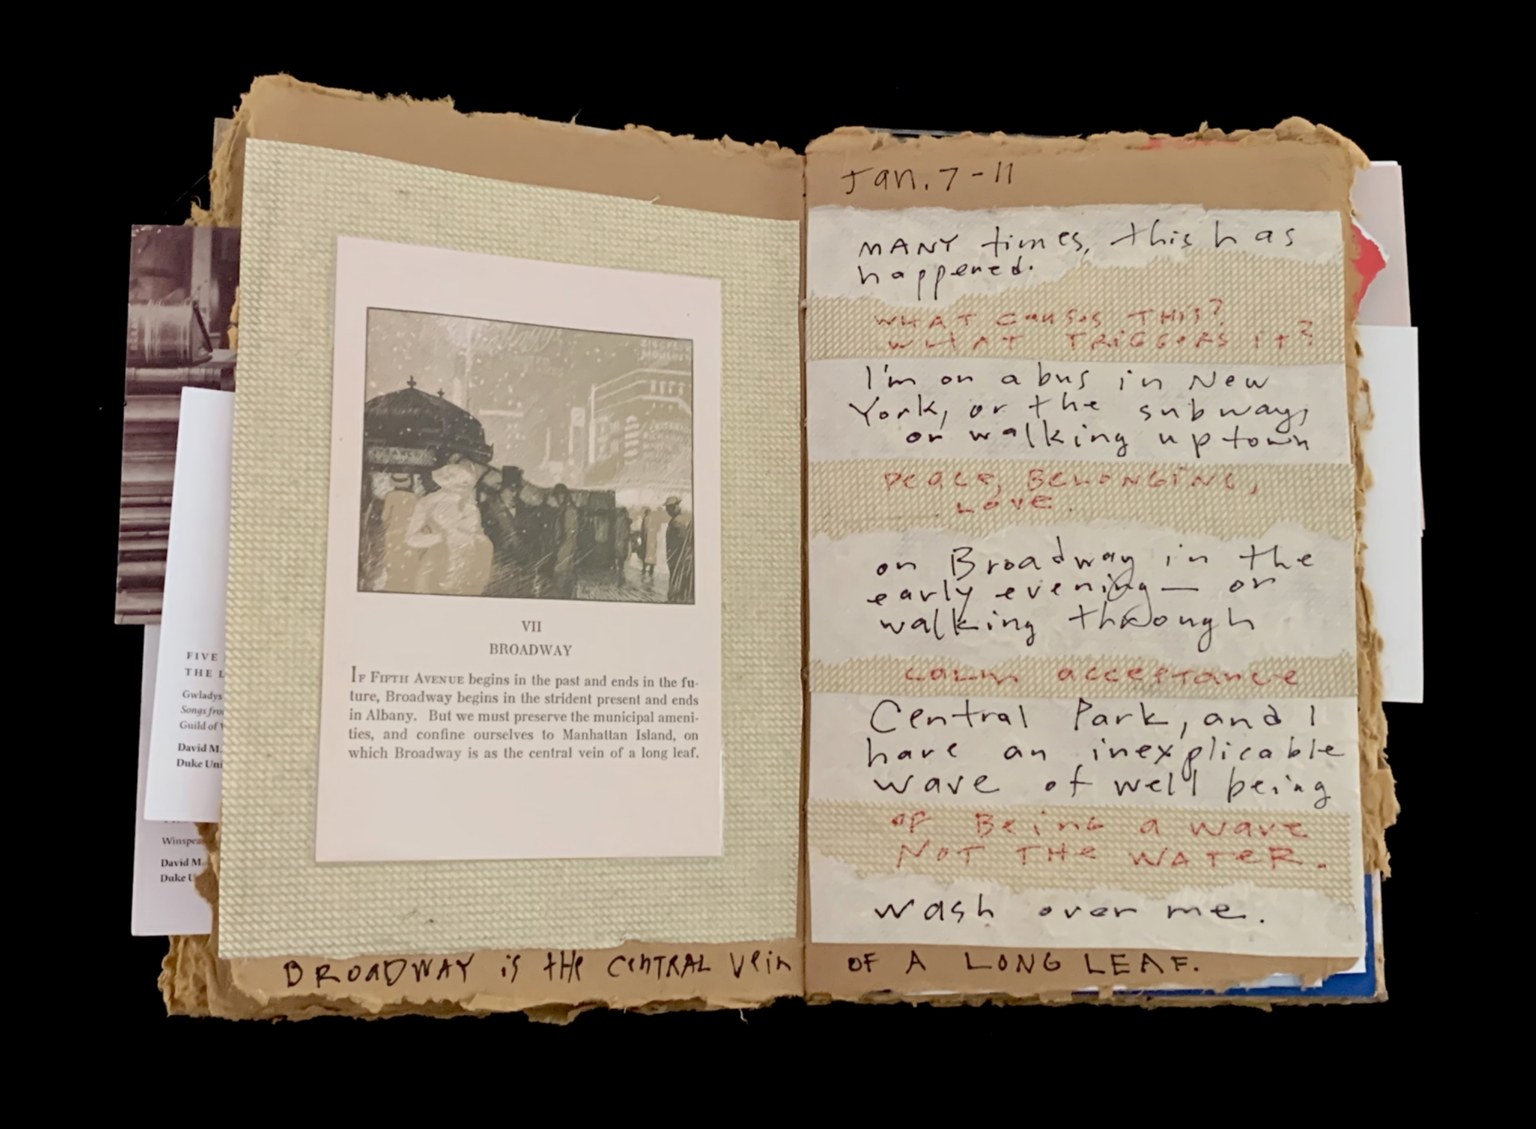 FIVE
THE L
Gwladys
Songs fro
Guild of
David M.
Duke Uni
Winspea
David M.
Duke U
VII
BROADWAY
IF FIFTH AVENUE begins in the past and ends in the fu-
ture, Broadway begins in the strident present and ends
in Albany. But we must preserve the municipal ameni-
ties, and confine ourselves to Manhattan Island, on
which Broadway is as the central vein of a long leaf.
BROADWAY is the CENTRAL Vein
Jan. 7-11
MANY times, this has
happened.
WHAT CAUSES THIS?
WHAT TRIGGERS It?
I'm on a bus in New
York, or the subway,
or walking uptown
PEACE, BELONGING,
LOVE
on Broadway in the
early evening — or
walking through
CALM acceptance
Central Park, and I
have an inexplicable
wave of well being
OF BEING a wave
NOT THE WATER.
wash over me.
OF A LONG LEAF.